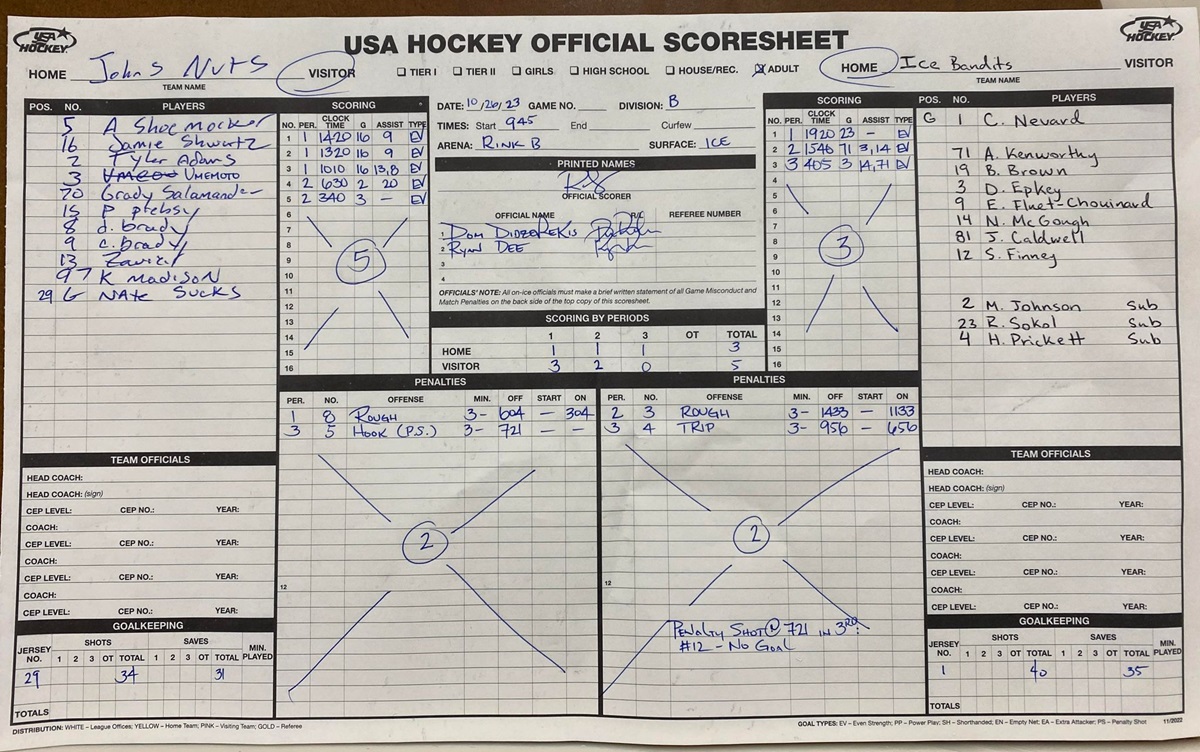 USA HOCKEY
USA HOCKEY OFFICIAL SCORESHEET
USA HOCKEY
HOME Johns Nuts VISITOR
TEAM NAME
☐ TIER I ☐ TIER II ☐ GIRLS ☐ HIGH SCHOOL ☐ HOUSE/REC. ☒ ADULT
HOME Ice Bandits VISITOR
TEAM NAME
POS. NO. PLAYERS
5 A Shoemocker
16 Jamie Shwartz
2 Tyler Adams
3 UMEMOTO
70 Grady Salamander
15 P prebsy
8 d. brady
9 c. brady
13
97 K MADISON
29 G NATE SUCKS
SCORING
NO. PER. CLOCK TIME G ASSIST TYPE
1 1 1420 16 9 EV
2 1 1320 16 9 EV
3 1 1010 16 13,8 EV
4 2 630 2 20 EV
5 2 340 3 - EV
6
7
8
9
10
11
12
13
14
15
16
5
DATE: 10/26/23 GAME NO. DIVISION: B
TIMES: Start 945 End Curfew
ARENA: RINK B SURFACE: ICE
PRINTED NAMES
OFFICIAL SCORER
OFFICIAL NAME R/L REFEREE NUMBER
1 DOM DIDZEREKIS
2 RYAN DEE
3
4
OFFICIALS' NOTE: All on-ice officials must make a brief written statement of all Game Misconduct and
Match Penalties on the back side of the top copy of this scoresheet.
SCORING BY PERIODS
1 2 3 OT TOTAL
HOME 1 1 1 3
VISITOR 3 2 0 5
SCORING
NO. PER. CLOCK TIME G ASSIST TYPE
1 1 1920 23 - EV
2 2 1546 71 3,14 EV
3 3 405 3 14,71 EV
4
5
6
7
8
9
10
11
12
13
14
15
16
3
POS. NO. PLAYERS
G 1 C. Nevard
71 A. Kenworthy
19 B. Brown
3 D. Epkey
9 E. Fluet-Chouinard
14 N. McGough
81 J. Caldwell
12 S. Finney
2 M. Johnson Sub
23 R. Sokol Sub
4 H. Prickett Sub
PENALTIES
PER. NO. OFFENSE MIN. OFF START ON
1 8 ROUGH 3- 604 - 304
3 5 HOOK (P.S.) 3- 721 - -
2
12
PENALTIES
PER. NO. OFFENSE MIN. OFF START ON
2 3 ROUGH 3- 1433 - 1133
3 4 TRIP 3- 956 - 656
2
12
PENALTY SHOT @ 721 IN 3RD.
#12 - NO GOAL
TEAM OFFICIALS
HEAD COACH:
HEAD COACH: (sign)
CEP LEVEL: CEP NO.: YEAR:
COACH:
CEP LEVEL: CEP NO.: YEAR:
COACH:
CEP LEVEL: CEP NO.: YEAR:
COACH:
CEP LEVEL: CEP NO.: YEAR:
GOALKEEPING
JERSEY NO. SHOTS 1 2 3 OT TOTAL SAVES 1 2 3 OT TOTAL MIN. PLAYED
29 34 31
TOTALS
TEAM OFFICIALS
HEAD COACH:
HEAD COACH: (sign)
CEP LEVEL: CEP NO.: YEAR:
COACH:
CEP LEVEL: CEP NO.: YEAR:
COACH:
CEP LEVEL: CEP NO.: YEAR:
COACH:
CEP LEVEL: CEP NO.: YEAR:
GOALKEEPING
JERSEY NO. SHOTS 1 2 3 OT TOTAL SAVES 1 2 3 OT TOTAL MIN. PLAYED
1 40 35
TOTALS
DISTRIBUTION: WHITE – League Offices; YELLOW – Home Team; PINK – Visiting Team; GOLD – Referee
GOAL TYPES: EV – Even Strength; PP – Power Play; SH – Shorthanded; EN – Empty Net; EA – Extra Attacker; PS – Penalty Shot 11/2022